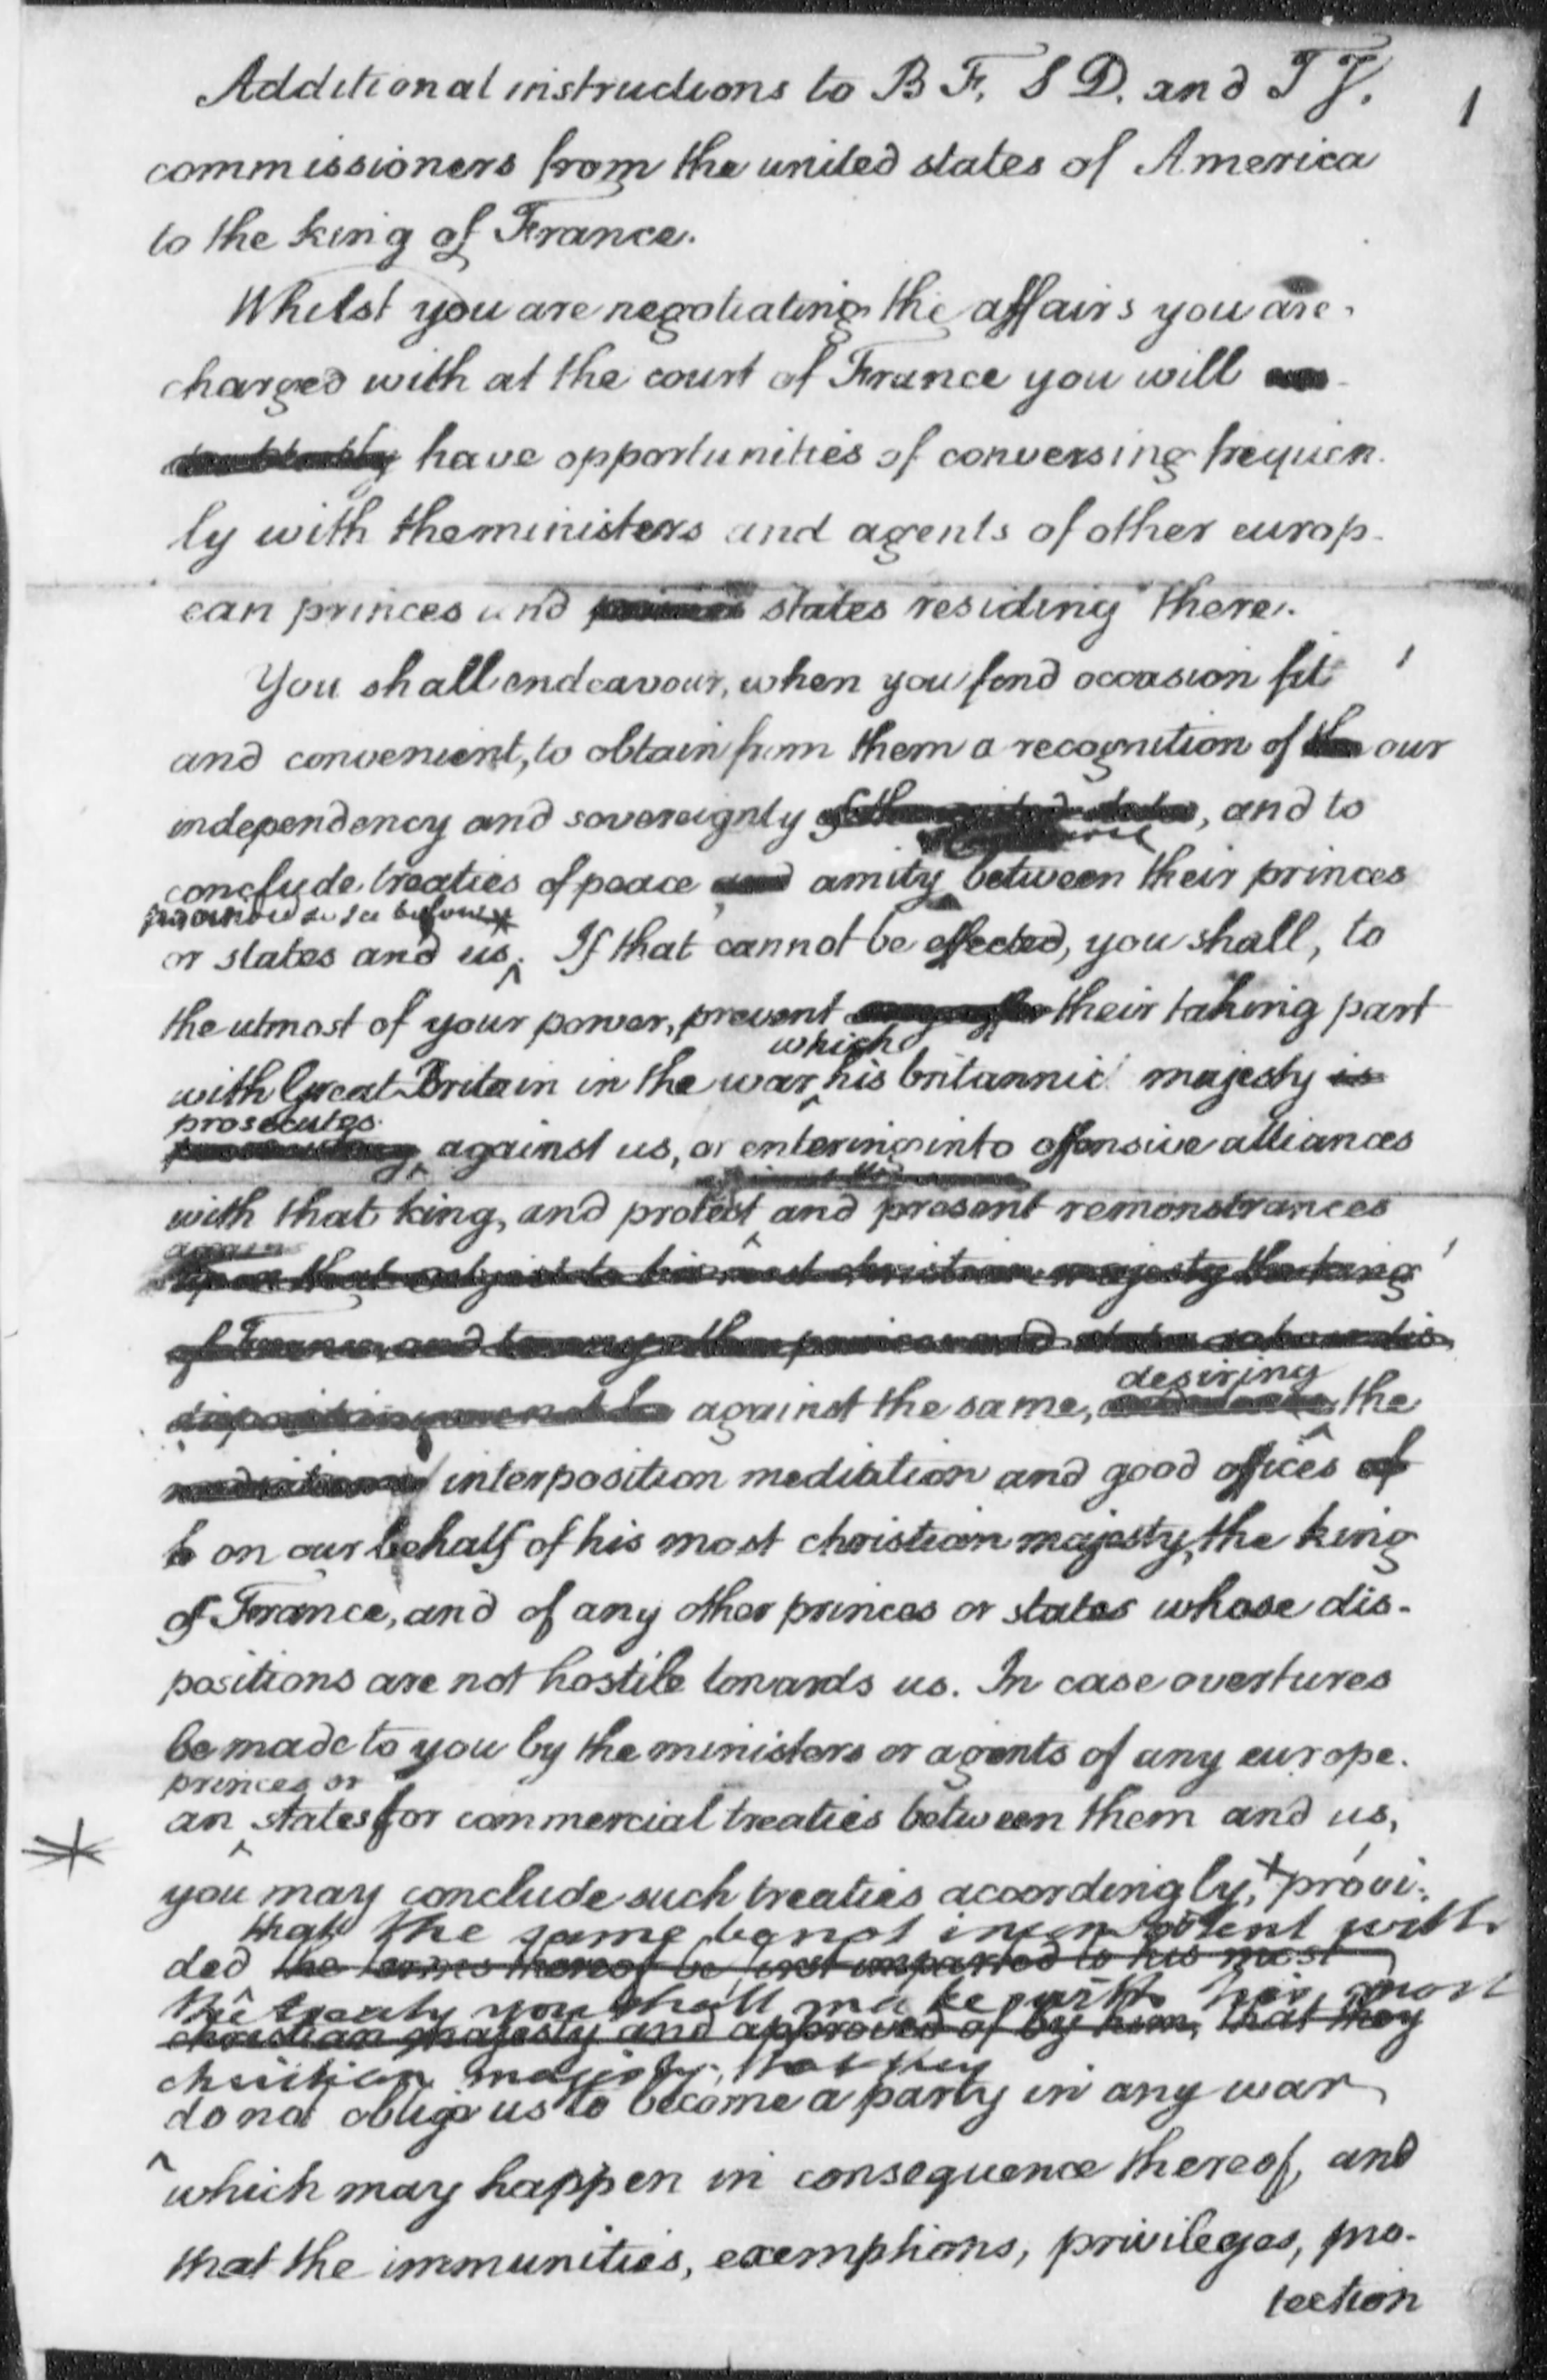 Additional instructions to B F, S D. and T J.
1
commissioners from the united states of America
to the king of France.
Whilst you are negotiating the affairs you are
charged with at the court of France you will
have opportunities of conversing frequen.
ly with the ministers and agents of other europ-
ean princes and states residing there.
You shall endeavour, when you find occasion fit
and convenient, to obtain from them a recognition of the our
independency and sovereignty of the united states, and to
conclude treaties of peace and amity between their princes
or states and us. If that cannot be effected, you shall, to
the utmost of your power, prevent their taking part
which
with Great Britain in the war his britannic majesty is
prosecutes
against us, or entering into offensive alliances
with that king, and protest and present remonstrances
upon that subject to his most christian majesty the king
of France, and to any other princes and states whose dis
desiring
against the same, the
interposition mediation and good offices of
to on our behalf of his most christian majesty, the king
of France, and of any other princes or states whose dis-
positions are not hostile towards us. In case overtures
be made to you by the ministers or agents of any europe.
princes or
an states for commercial treaties between them and us,
you may conclude such treaties accordingly, + provi.
that the same be not inconsistent with
ded the terms thereof be first imparted to his most
the treaty you shall make with his most
christian majesty and approved of by him, that they
christian majesty, that they
do not oblige us to become a party in any war
which may happen in consequence thereof, and
that the immunities, exemptions, privileges, pro-
tection